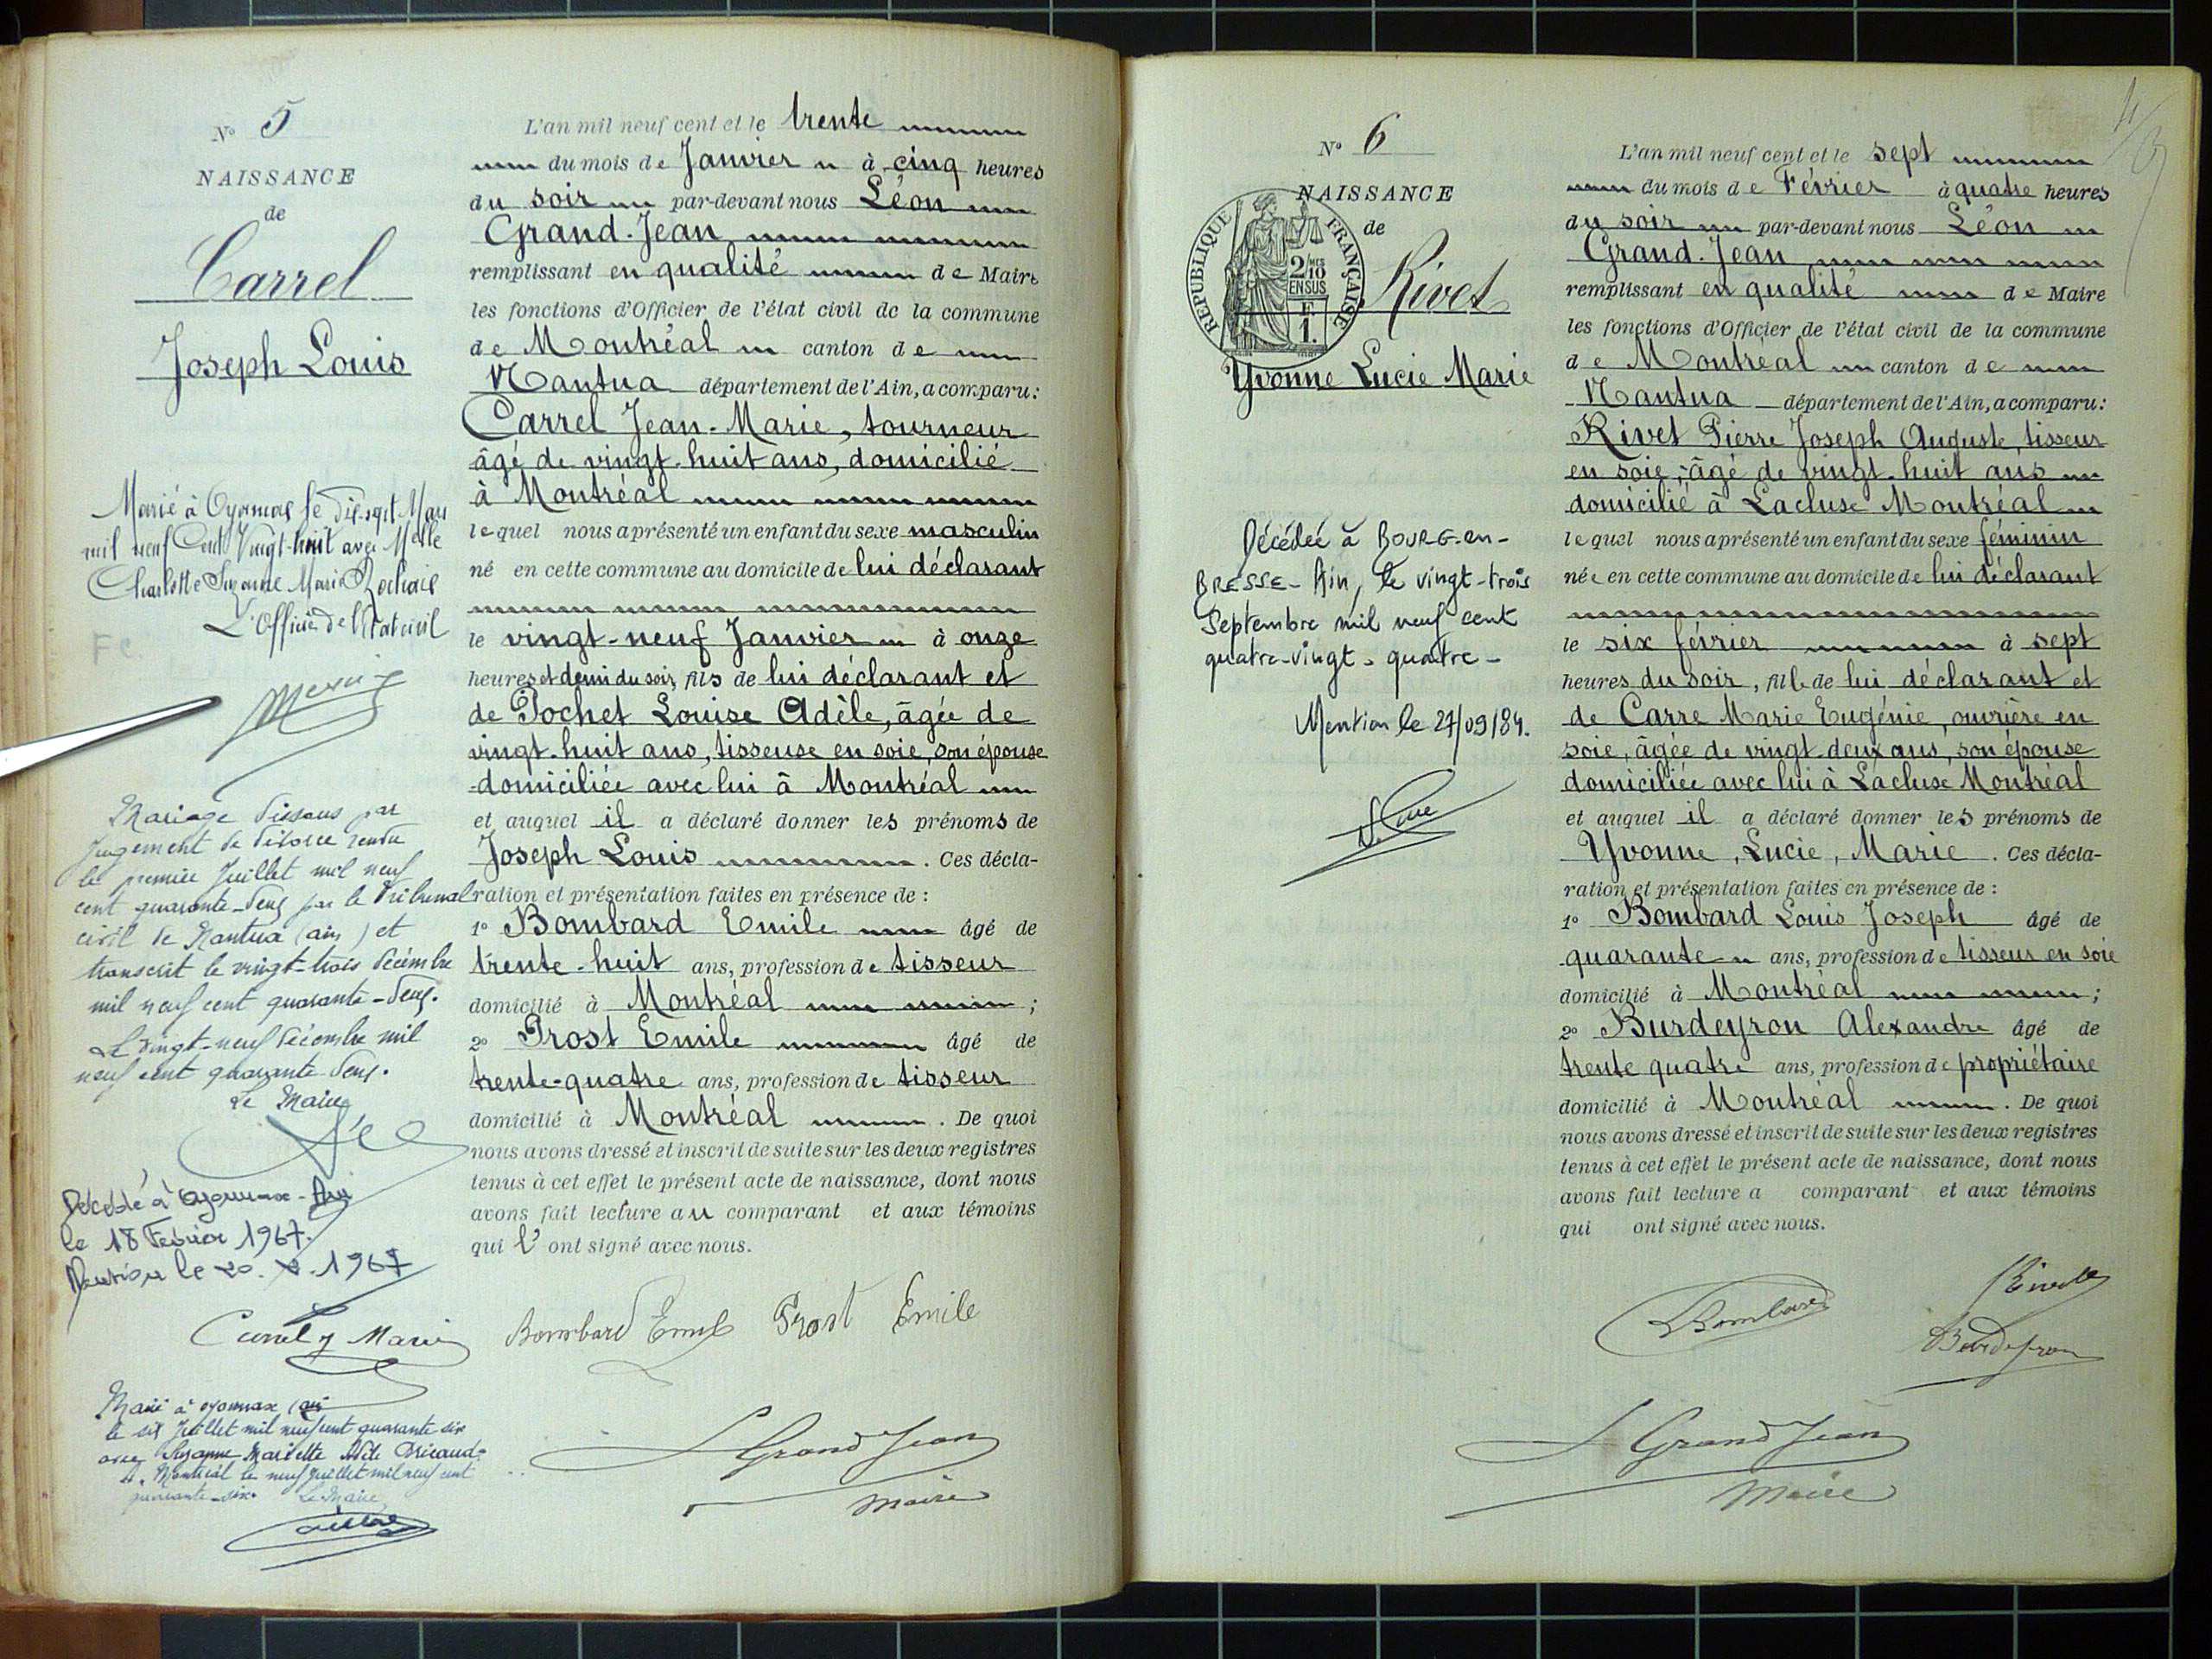 N° 5
NAISSANCE
de
Carrel
Joseph Louis
Marié à Oyonnax le dix-sept Mars
mil neuf Cent Vingt-huit avec Melle
Charlotte Suzanne Marie
L'Officier de l'état civil
Mariage dissous par
jugement de divorce rendu
le premier Juillet mil neuf
cent quarante-deux par le Tribunal
civil de Nantua (ain) et
transcrit le vingt-trois décembre
mil neuf cent quarante-deux.
Le vingt-neuf décembre mil
neuf cent quarante-deux.
Le Maire
Décédé à Oyonnax - Ain
le 18 Février 1967.
Mention le 20. 2. 1967
L'an mil neuf cent et le trente
du mois de Janvier à cinq heures
du soir par-devant nous Léon
Grand-Jean
remplissant en qualité de Maire
les fonctions d'Officier de l'état civil de la commune
de Montréal canton de
Nantua département de l'Ain, a comparu:
Carrel Jean-Marie, tourneur
âgé de vingt-huit ans, domicilié
à Montréal
lequel nous a présenté un enfant du sexe masculin
né en cette commune au domicile de lui déclarant
le vingt-neuf Janvier à onze
heures et demi du soir, fils de lui déclarant et
de Pochet Louise Adèle, âgée de
vingt-huit ans, tisseuse en soie, son épouse
domiciliée avec lui à Montréal
et auquel il a déclaré donner les prénoms de
Joseph Louis . Ces décla-
ration et présentation faites en présence de :
1° Bombard Emile âgé de
trente-huit ans, profession de tisseur
domicilié à Montréal ;
2° Prost Emile âgé de
trente-quatre ans, profession de tisseur
domicilié à Montréal . De quoi
nous avons dressé et inscrit de suite sur les deux registres
tenus à cet effet le présent acte de naissance, dont nous
avons fait lecture au comparant et aux témoins
qui l' ont signé avec nous.
Carrel J Marie Bombard Emile Prost Emile
L Grand Jean
Maire
Marié à Oyonnax (ain
le six Juillet mil neuf cent quarante six
avec Suzanne Mariette Adèle
A Montréal le neuf juillet mil neuf cent
quarante-six. Le Maire
N° 6
NAISSANCE
de
REPUBLIQUE FRANÇAISE
2/10 MES
EN SUS
F
1.
Rivet
Yvonne Lucie Marie
Décédée à BOURG-en-
BRESSE - Ain, le vingt-trois
Septembre mil neuf cent
quatre-vingt-quatre -
Mention le 27/09/84.
L'an mil neuf cent et le sept
du mois de Février à quatre heures
du soir par-devant nous Léon
Grand-Jean
remplissant en qualité de Maire
les fonctions d'Officier de l'état civil de la commune
de Montréal canton de
Nantua département de l'Ain, a comparu:
Rivet Pierre Joseph Auguste, tisseur
en soie, âgé de vingt-huit ans
domicilié à Lacluse Montréal
lequel nous a présenté un enfant du sexe féminin
née en cette commune au domicile de lui déclarant
le six février à sept
heures du soir, fille de lui déclarant et
de Carre Marie Eugénie, ouvrière en
soie, âgée de vingt-deux ans, son épouse
domiciliée avec lui à Lacluse Montréal
et auquel il a déclaré donner les prénoms de
Yvonne, Lucie, Marie . Ces décla-
ration et présentation faites en présence de :
1° Bombard Louis Joseph âgé de
quarante ans, profession de tisseur en soie
domicilié à Montréal ;
2° Burdeyron Alexandre âgé de
trente quatre ans, profession de propriétaire
domicilié à Montréal . De quoi
nous avons dressé et inscrit de suite sur les deux registres
tenus à cet effet le présent acte de naissance, dont nous
avons fait lecture a comparant et aux témoins
qui ont signé avec nous.
LBombard
Burdeyron
L Grand Jean
Maire